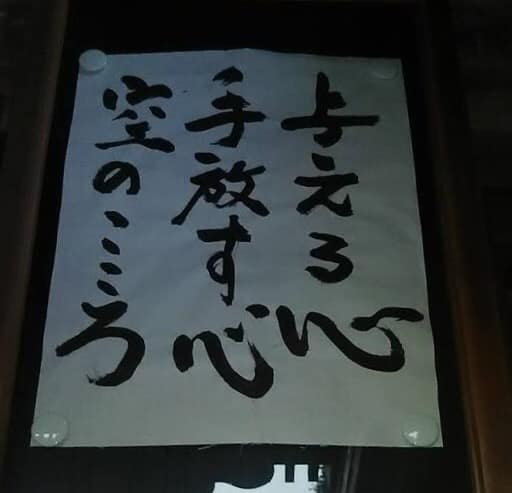 与える心
手放す心
空のこころ